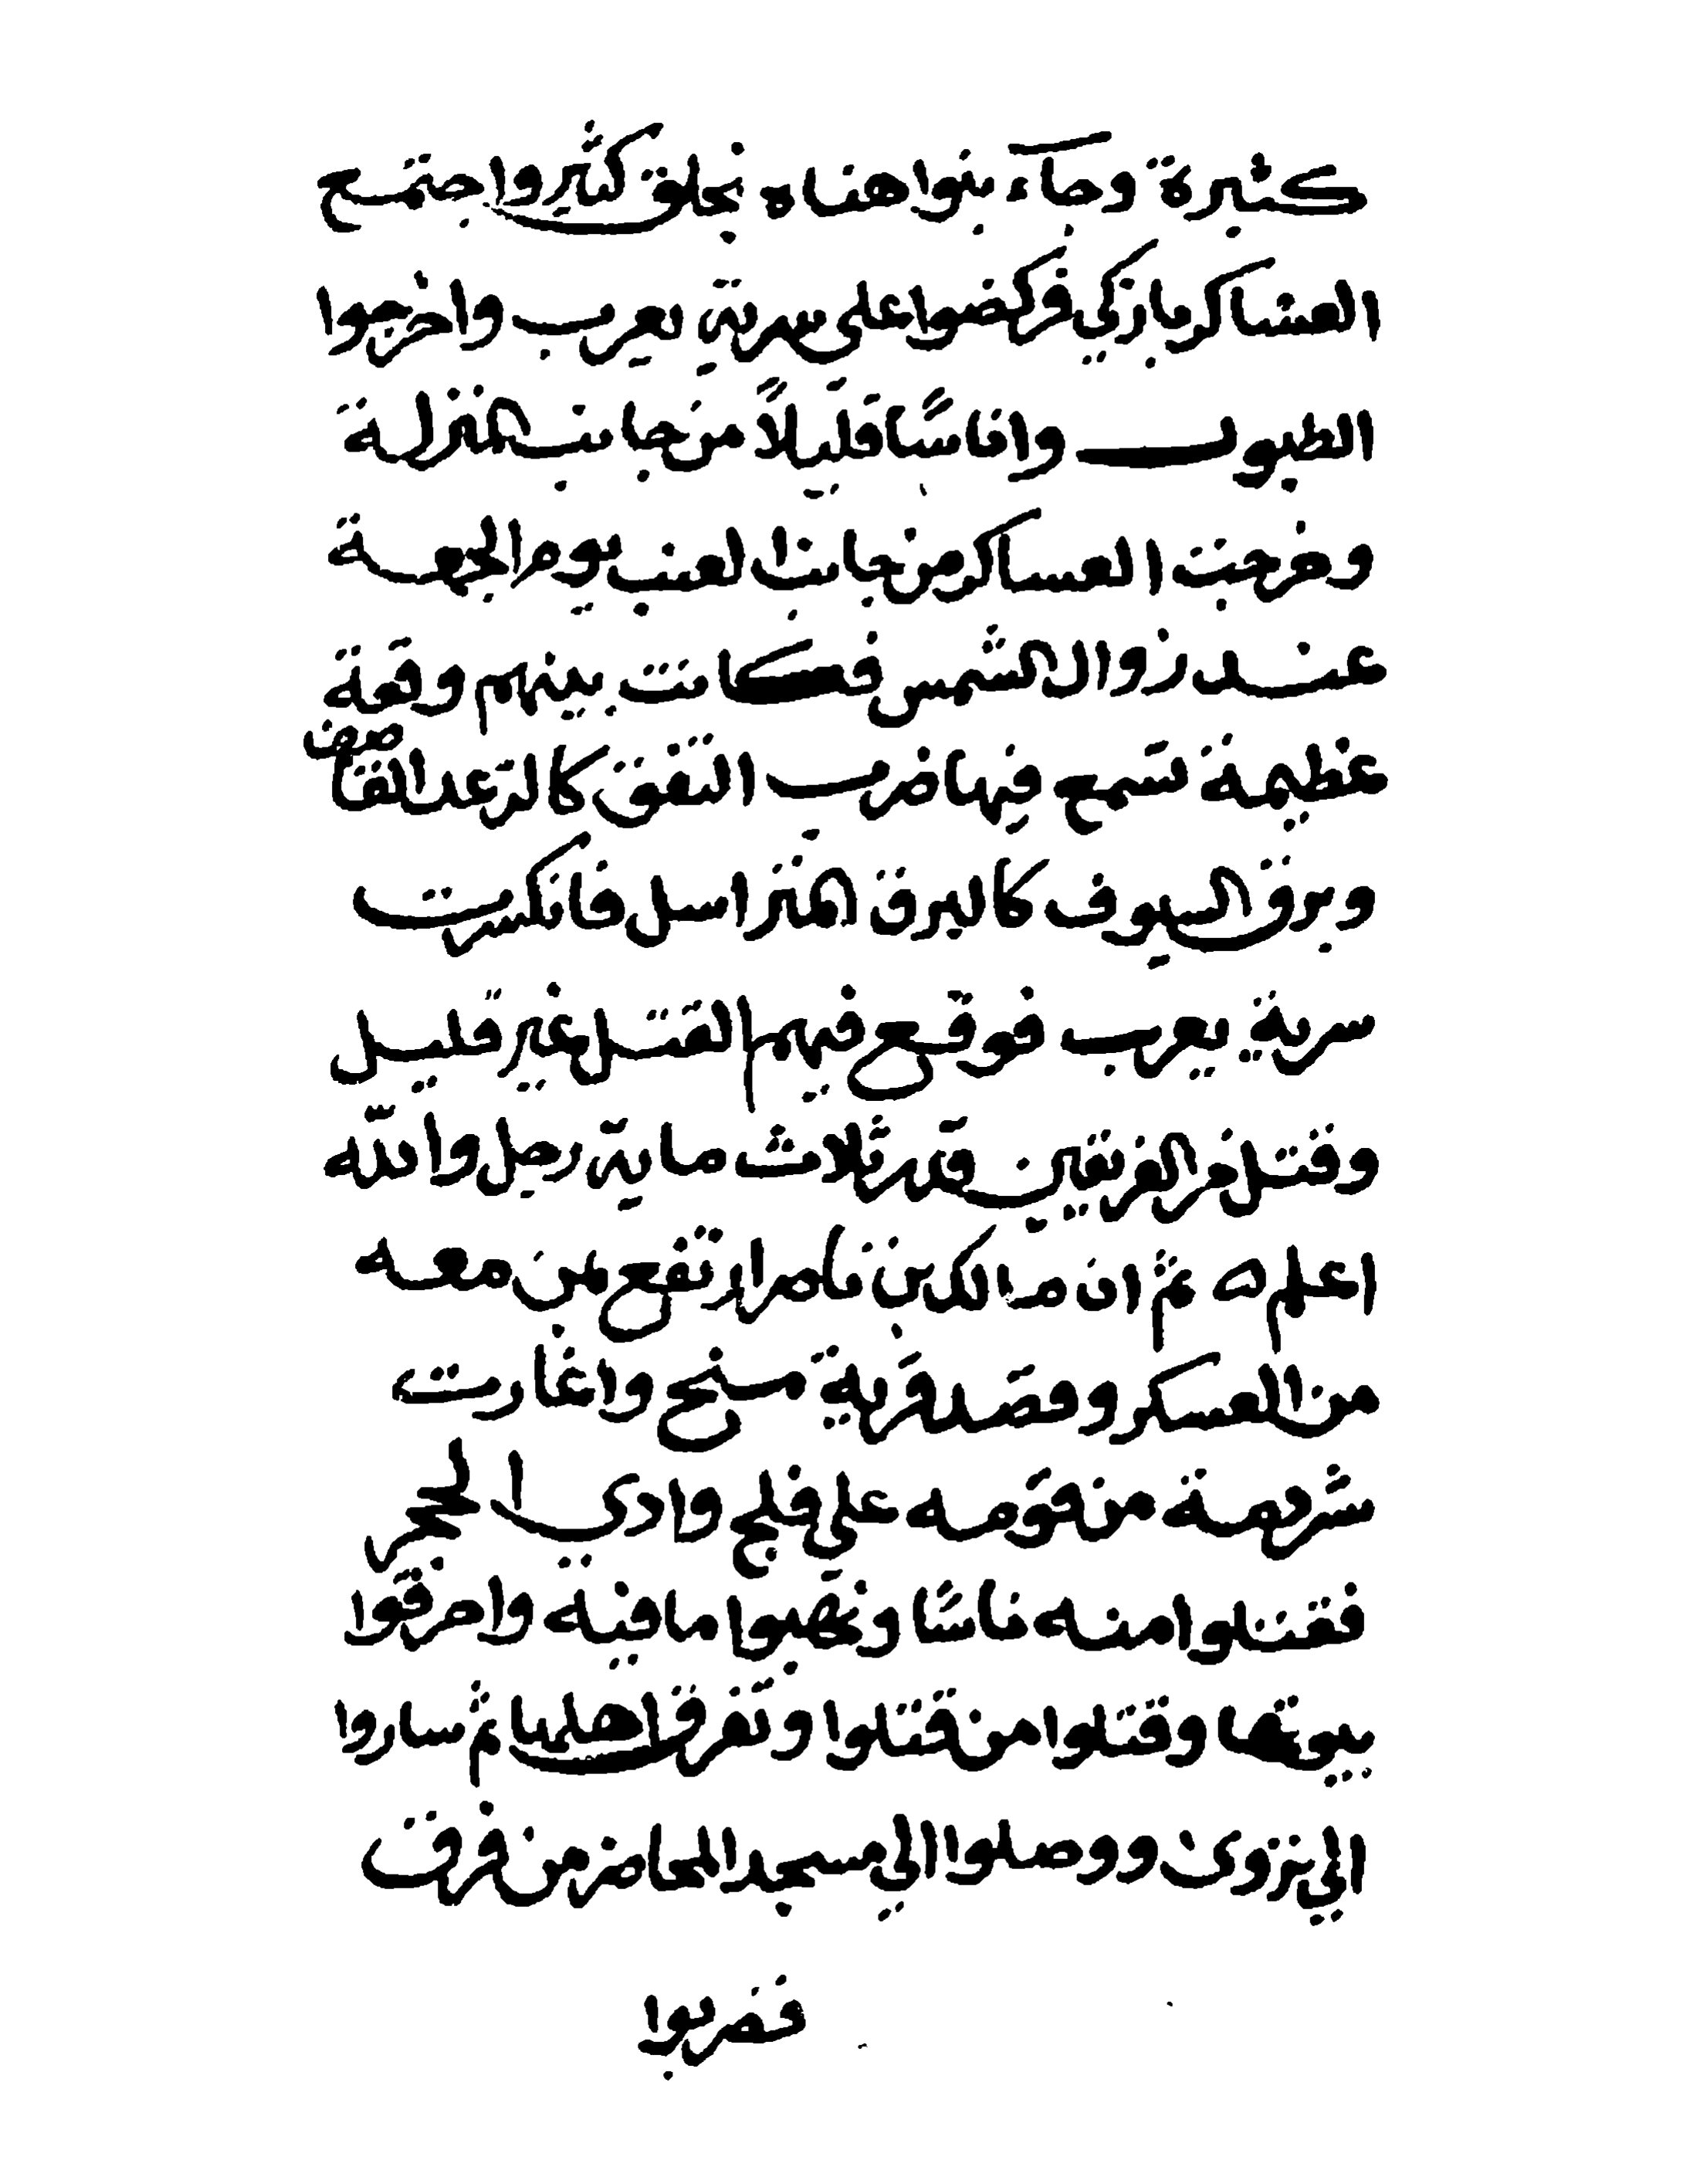 كثيرة وجآء بنوا هناه بخلق كثير واجتمع
العساكر بازكي فركضوا على سرية يعرب واخرجوا
الطبول واناسًا قليلاً من جانب المنزلة
وخرجت العساكر من جانب العنب يوم الجمعة
عند زوال الشمس فكانت بينهم وقعة
عظيمة تسمع فيها ضرب التفق كالرعد القاصف
وبرق السيوف كالبرق المتراسل فانكسرت
سرية يعرب فوقع فيهم القتل غير قليل
وقتل من الفريقين قدر ثلاث ماية رجل والله
اعلم ثم ان مالك بن ناصر ارتفع بمن معه
من العسكر وقصد قرية منح واغارت
شرهمة من قومه على فلج وادى الحجر
فقتلوا منه ناسًا ونهبوا ما فيه واحرقوا
بيوتها وقتلوا من قتلوا وتفرق اهلها ثم ساروا
الي نزوى ووصلوا الي مسجد المخاض من فرق
فضربوا